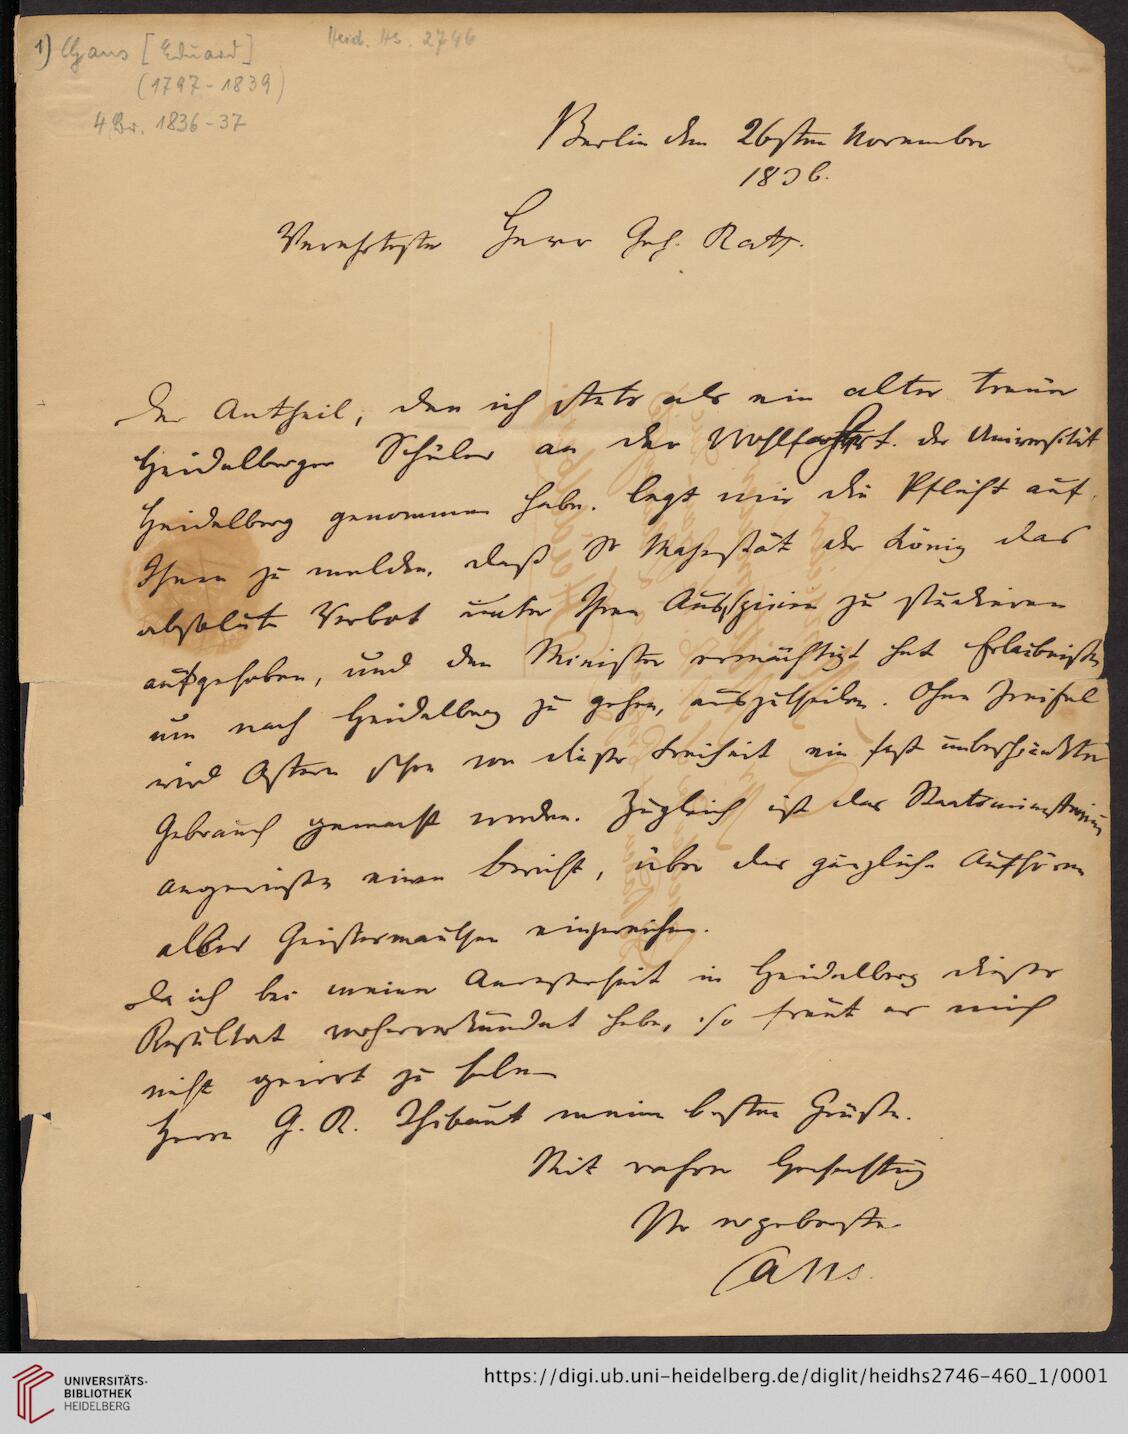 1) Gans [Eduard]
(1797-1839)
4 Br. 1836-37
Heid. Hs. 2746
Berlin den 26sten November
1836.
Verehrtester Herr Geh. Rath.
Der Antheil, den ich stets als ein alter treuer
Heidelberger Schüler an der Wohlfahrt der Universität
Heidelberg genommen habe, legt mir die Pflicht auf,
Ihnen zu melden, daß Sr Majestät der König das
absolute Verbot unter Ihren Auspicien zu studieren
aufgehoben, und den Minister ermächtigt hat Erlaubniße,
um nach Heidelberg zu gehen, auszutheilen. Ohne Zweifel
wird Ostern schon von dieser Freiheit ein fast unbeschränkter
Gebrauch gemacht werden. Zugleich ist das Staatsministerium
angewiesen einen Bericht, über das gänzliche Aufhören
aller einzureichen.
Da ich bei meiner Anwesenheit in Heidelberg dieses
Resultat vorherverkündet habe, so freut es mich
nicht geirrt zu haben
Herrn G. R. Thibaut meine besten Grüße.
Mit wahrer Hochachtung
Ihr ergebenster
Gans.
UNIVERSITÄTS-
BIBLIOTHEK
HEIDELBERG
https://digi.ub.uni-heidelberg.de/diglit/heidhs2746-460_1/0001